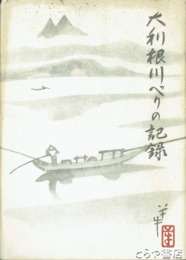 大利根川べりの記録
とらや書店